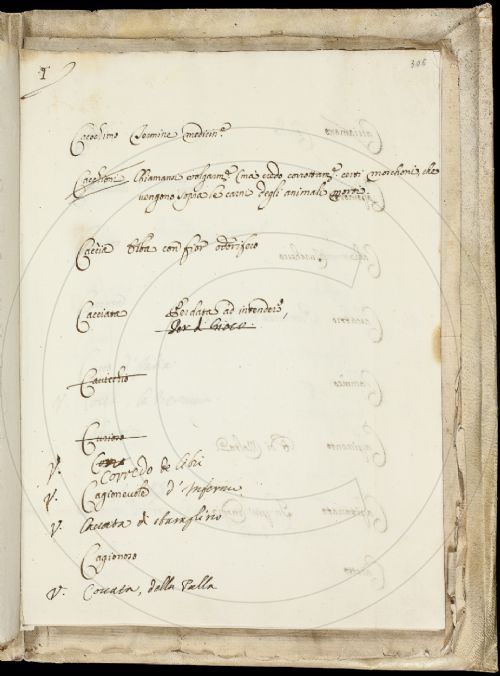 1
306
Cacochimo Termine medicin.e
Cacchioni Chiamano volgarm.e (ma credo corrottam.e certi morchioni, che
vengono sopra le carni degli animali
Caccia Erba con fior odorifero
Cacciata Per data ad intender.e,
Cavicchio
Curioso
V. Corredo de libri
V. Cagionevole d'Inferm
V. Caccata di sbaraglino
Cagionoso
V. Cocata, della Palla